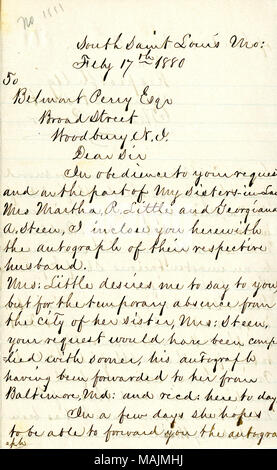 No 1811
South Saint Louis Mo:
Feby 17th 1880
To
Belmont Perry Esqr
Broad Street
Woodbury N.J.
Dear Sir
In obedience to your reques
and on the part of My Sisters-in-Law
Mrs Martha, R. Little and Georgiana
A. Steen, I inclose you herewith
the autograph of their respective
husband.
Mrs: Little desires me to say to you
but for the temporary absence from
the city of her sister, Mrs: Steen,
your request would have been comp
lied with sooner, his autograph
having been forwarded to her from
Baltimore, Md: and recd: here to day
In a few days she hopes
to be able to forward you the autogra
aph
alamy
Image ID: MAJMHJ
www.alamy.com